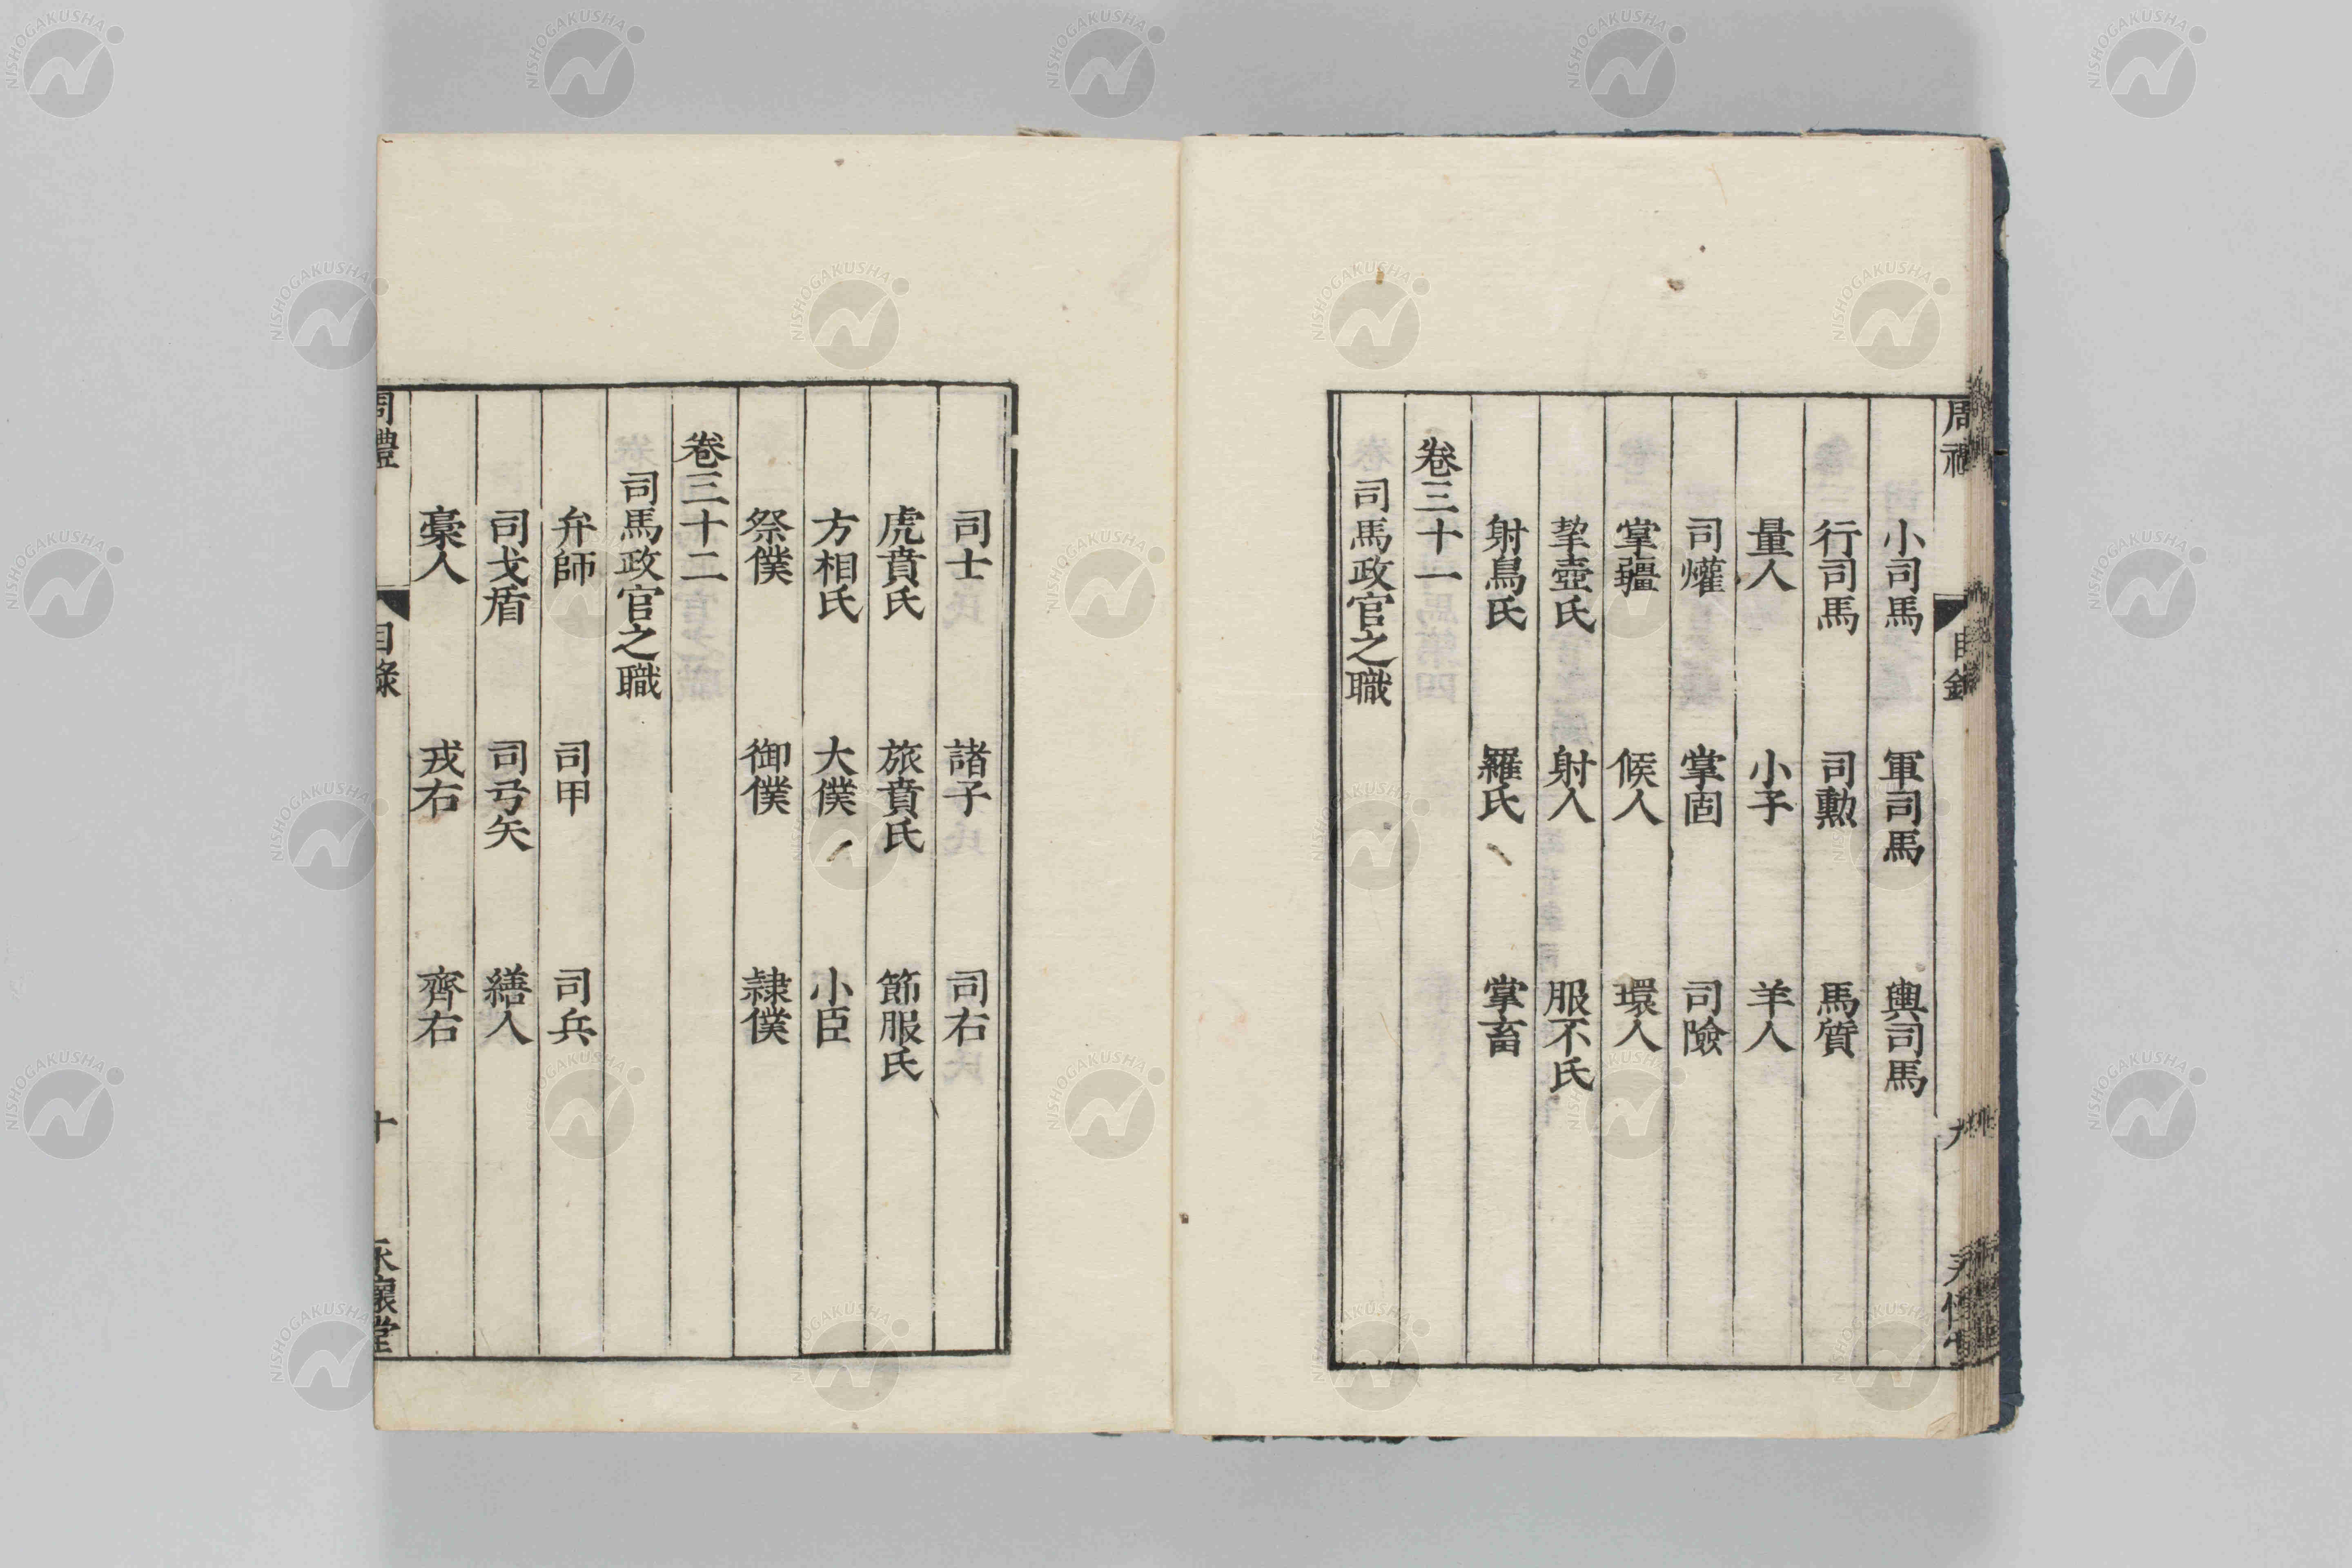 小司馬 軍司馬 輿司馬
行司馬 司勲 馬質
量人 小子 羊人
司爟 掌固 司險
掌疆 候人 環人
挈壺氏 射人 服不氏
射鳥氏 羅氏 掌畜
卷三十一
司馬政官之職
司士 諸子 司右
虎賁氏 旅賁氏 節服氏
方相氏 大僕 小臣
祭僕 御僕 隷僕
卷三十二
司馬政官之職
弁師 司甲 司兵
司戈盾 司弓矢 繕人
稾人 戎右 齊右
周禮 目錄 十 永懷堂
NISHOGAKUSHA